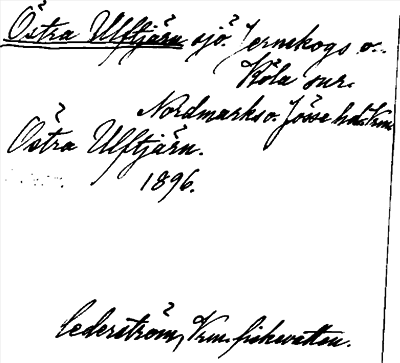 Östra Ulftjärn sjö Jernskogs o.
Köla snr.
Nordmarks o. Jösse hd. Vrm.
Östra Ulftjärn.
1896.
Cederström, Vrm. fiskevatten.